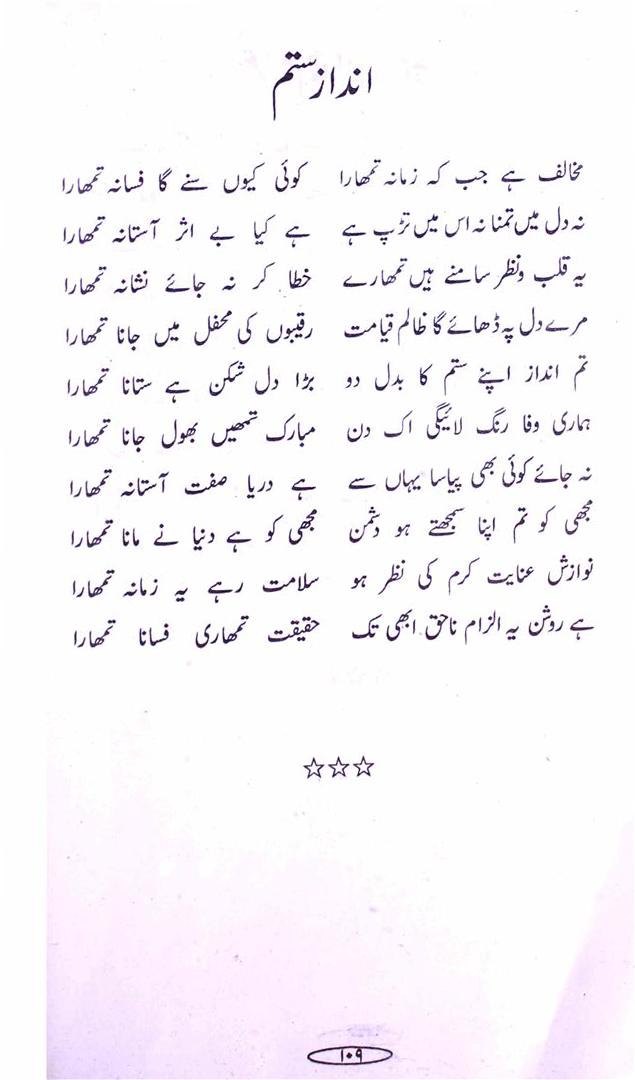 انداز ستم
مخالف ہے جب کہ زمانہ تمہارا کوئی کیوں سنے گا فسانہ تمہارا
نہ دل میں تمنا نہ اس میں تڑپ ہے ہے کیا بے اثر آستانہ تمہارا
یہ قلب ونظر سامنے ہیں تمہارے خطا کر نہ جائے نشانہ تمہارا
مرے دل پہ ڈھائے گا ظالم قیامت رقیبوں کی محفل میں جانا تمہارا
تم انداز اپنے ستم کا بدل دو بڑا دل شکن ہے ستانا تمہارا
ہماری وفا رنگ لائیگی اک دن مبارک تمھیں بھول جانا تمہارا
نہ جائے کوئی بھی پیاسا یہاں سے ہے دریا صفت آستانہ تمہارا
مجھی کو تم اپنا سمجھتے ہو دشمن مجھی کو ہے دنیا نے مانا تمہارا
نوازش عنایت کرم کی نظر ہو سلامت رہے یہ زمانہ تمہارا
ہے روشن یہ الزام ناحق ابھی تک حقیقت تمہاری فسانا تمہارا
☆☆☆
۱۰۹